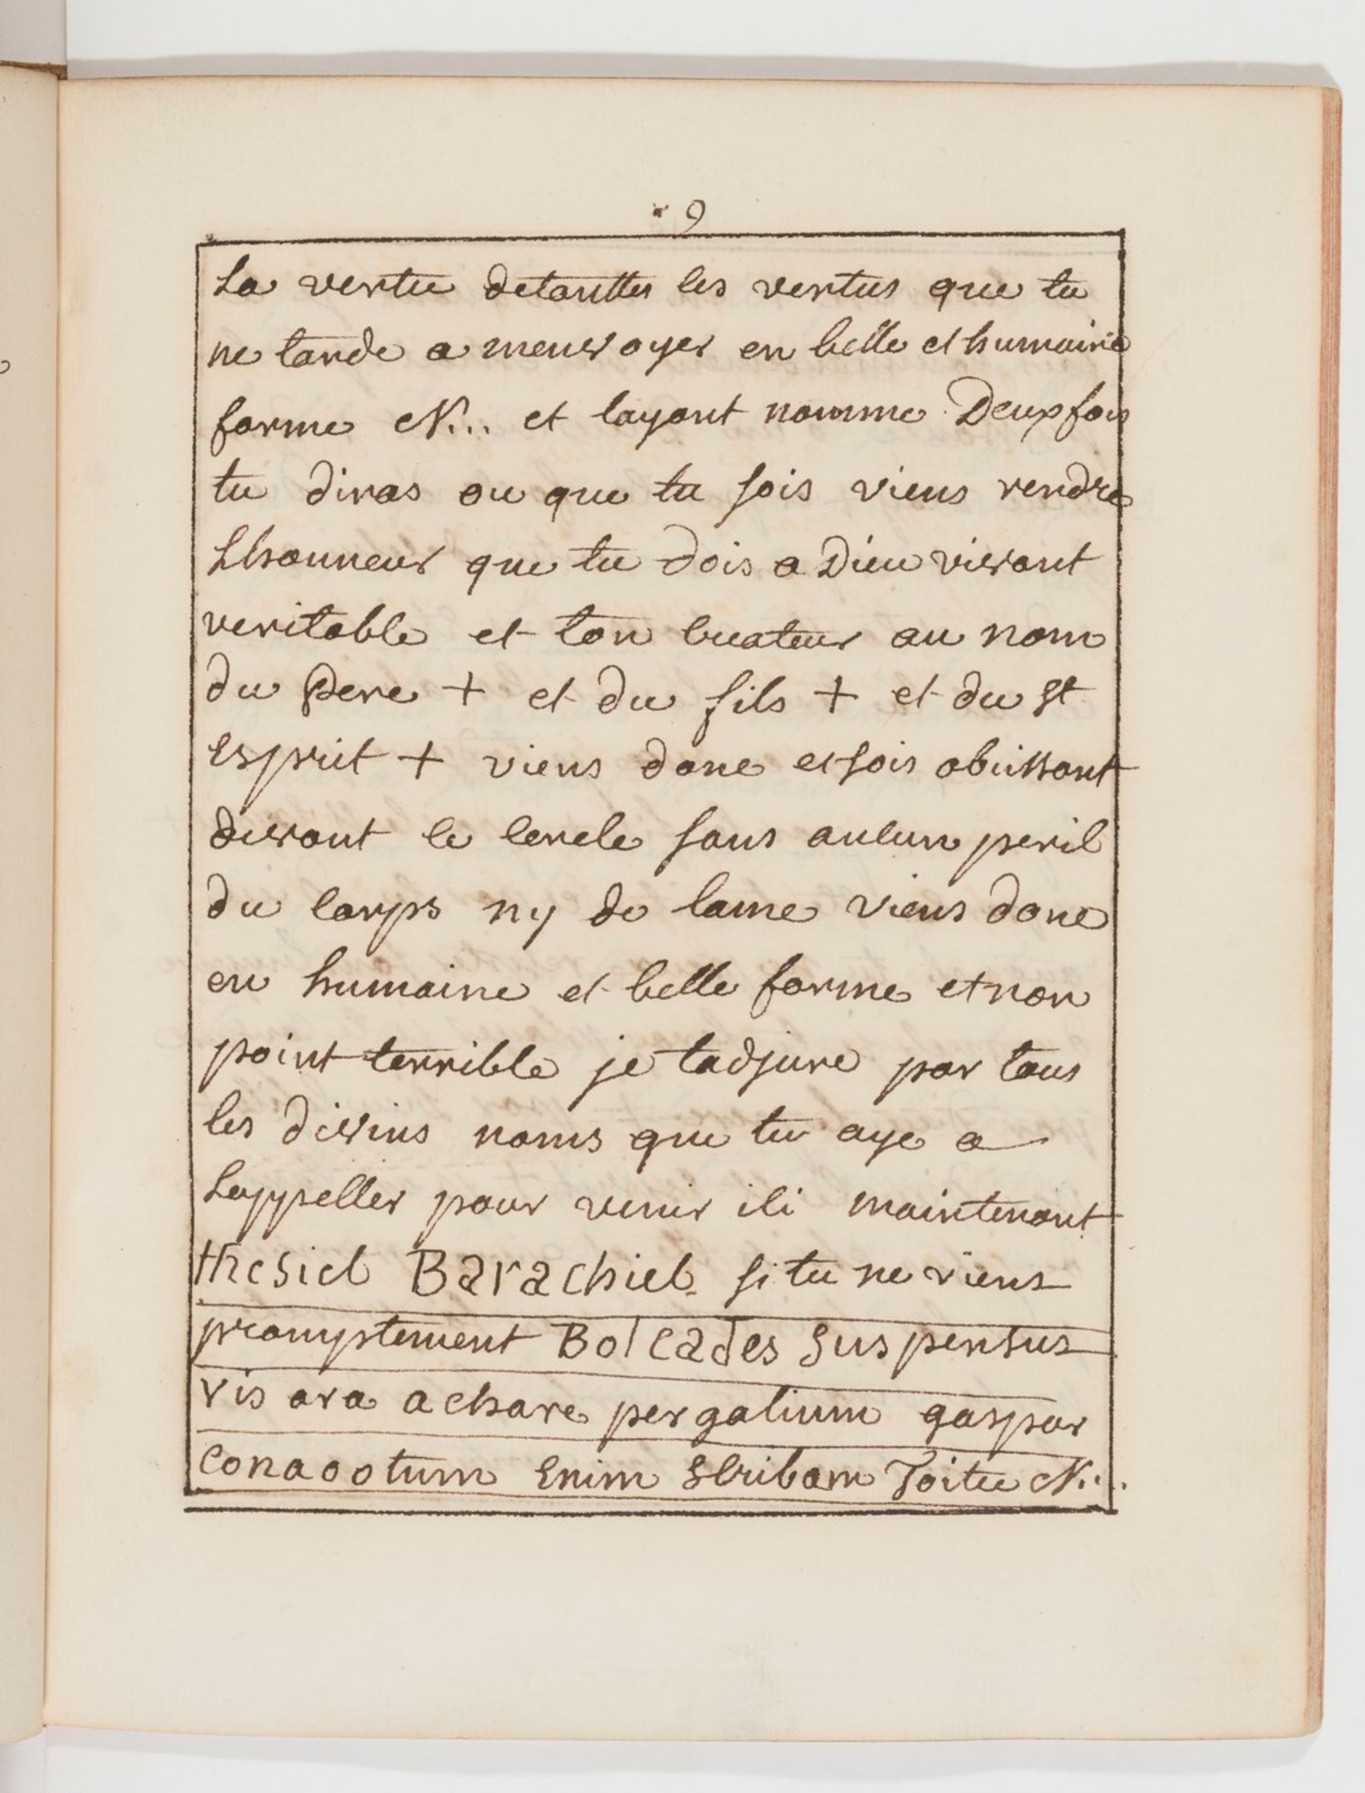 9
La vertu detouttes les vertus que tu
ne tarde a menvoyer en belle et humaine
forme N... et layant nomme Deux fois
tu diras ou que tu sois viens rendre
Lhonneur que tu dois a Dieu vivant
veritable et ton Createur au nom
du Pere + et du fils + et du St
Esprit + viens donc et sois obeissant
devant le Cercle sans aucun peril
du Corps ny de lame viens donc
en humaine et belle forme et non
point terrible je tadjure par tous
les divins noms que tu aye a
Lappeller pour venir ici maintenant
Barachiel si tu ne viens
promptement Bolcades Suspensus
vis ara achare pergalium gaspar
Conaootum Enim Scribam Toitu N...